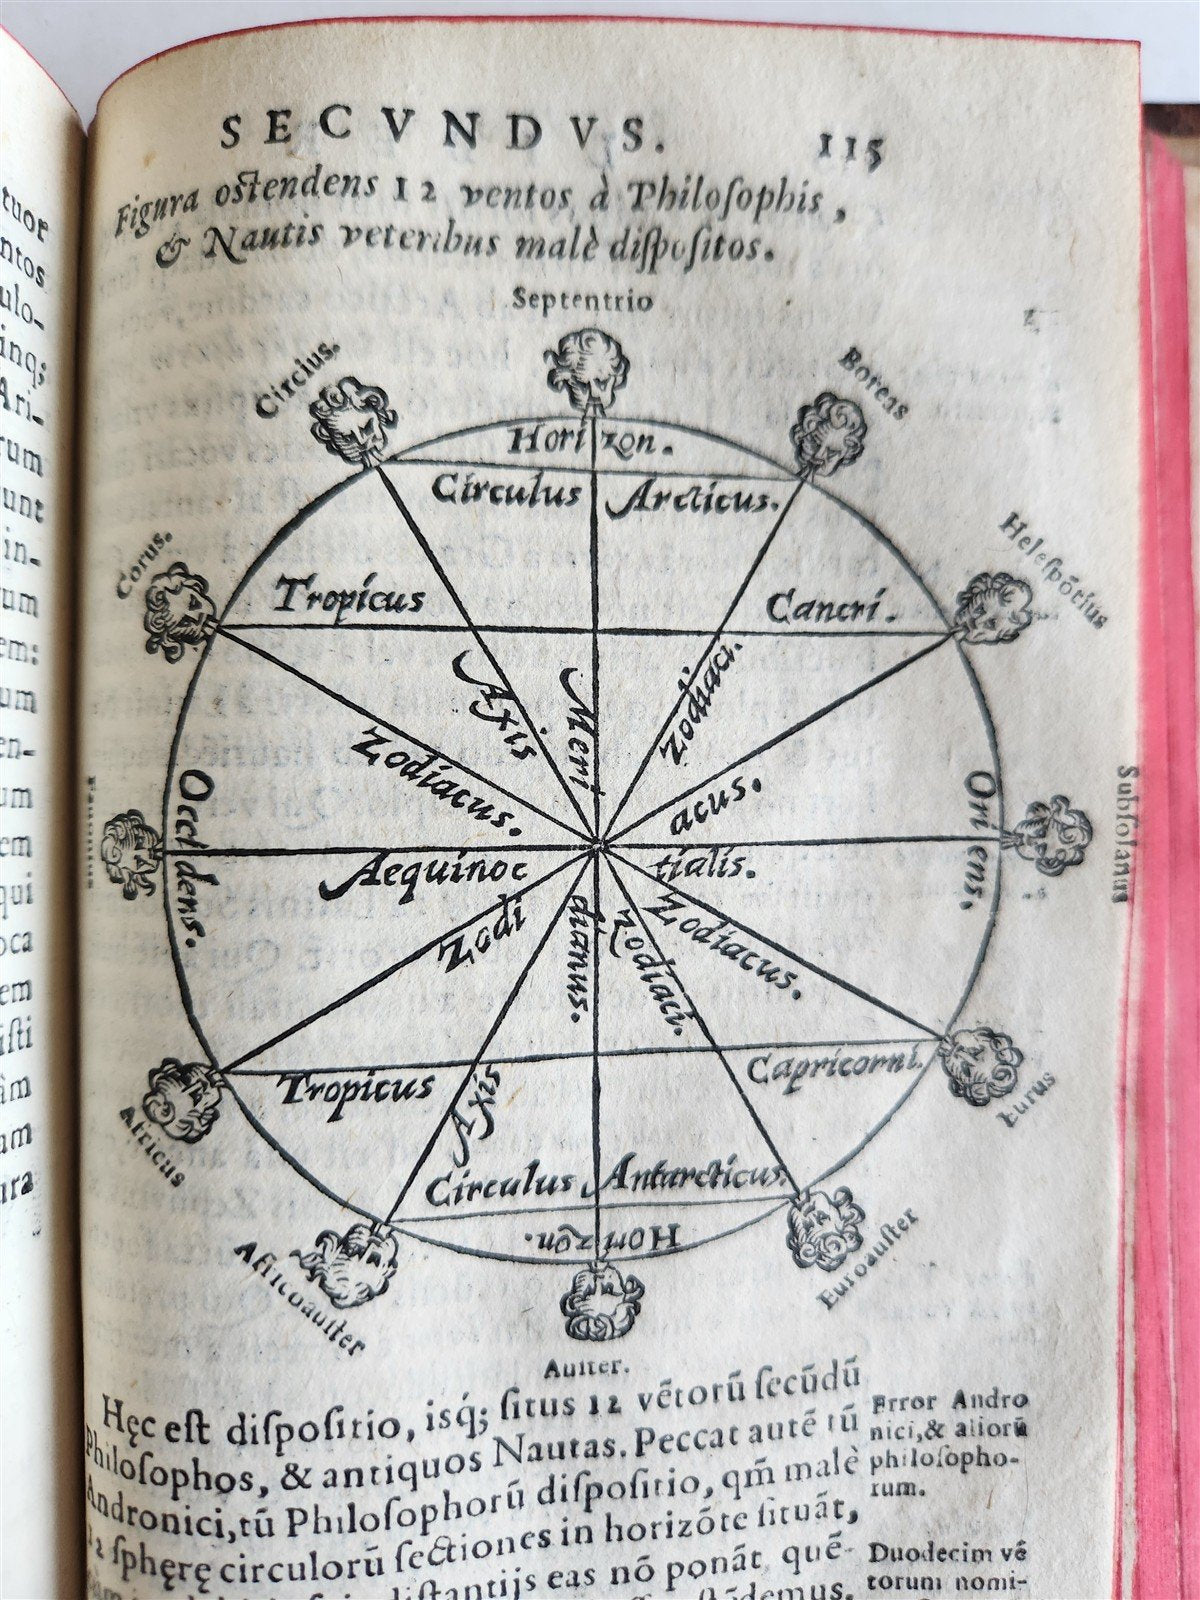 tuor
ntos
ulo-
inq;
Ari-
rum
unt
in-
um
em:
um
en-
um
em
qui
oca
em
isti
âm
um
ura
SECVNDVS. 115
Figura oſtendens 12 ventos à Philoſophis,
& Nautis veteribus malè diſpoſitos.
Septentrio
Circius.
Boreas
Horizon.
Circulus Arcticus.
Corus.
Heleſpõtius
Tropicus Cancri.
Axis
Meri
Zodiaci.
Zodiacus.
acus.
Fauonius
Occidens.
Oriens.
Subſolanus
Aequinoc tialis.
Zodi
dianus.
Zodiaci.
Zodiacus.
Tropicus Capricorni.
Africus
Eurus
Axis
Circulus Antarcticus.
Horizon.
Africoauſter
Euroauſter
Auſter.
Hęc eſt diſpoſitio, isq́; ſitus 12 vẽtorũ ſecũdũ
Philoſophos, & antiquos Nautas. Peccat autẽ tũ
Andronici, tũ Philoſophorũ diſpoſitio, qm̃ malè
12 ſphęrę circulorũ ſectiones in horizõte ſituãt,
diſtantijs eas nõ ponãt, quẽ-
Error Andro
nici, & aliorũ
philoſopho-
rum.
Duodecim vẽ
torum nomi-